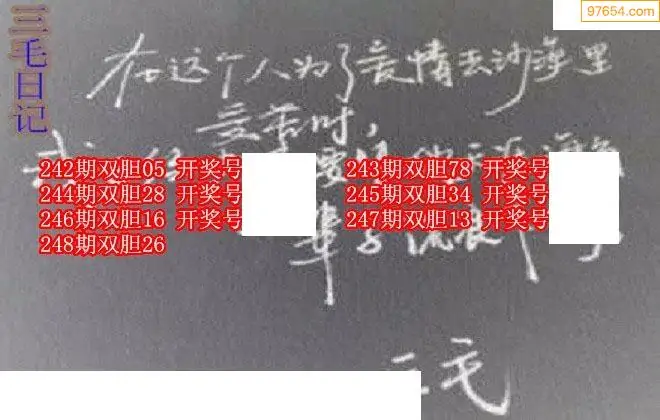 97654.com
三毛日记
在这个人为了爱情去沙漠里
受苦时，
242期双胆05 开奖号
243期双胆78 开奖号
244期双胆28 开奖号
245期双胆34 开奖号
246期双胆16 开奖号
247期双胆13 开奖号
248期双胆26
三毛